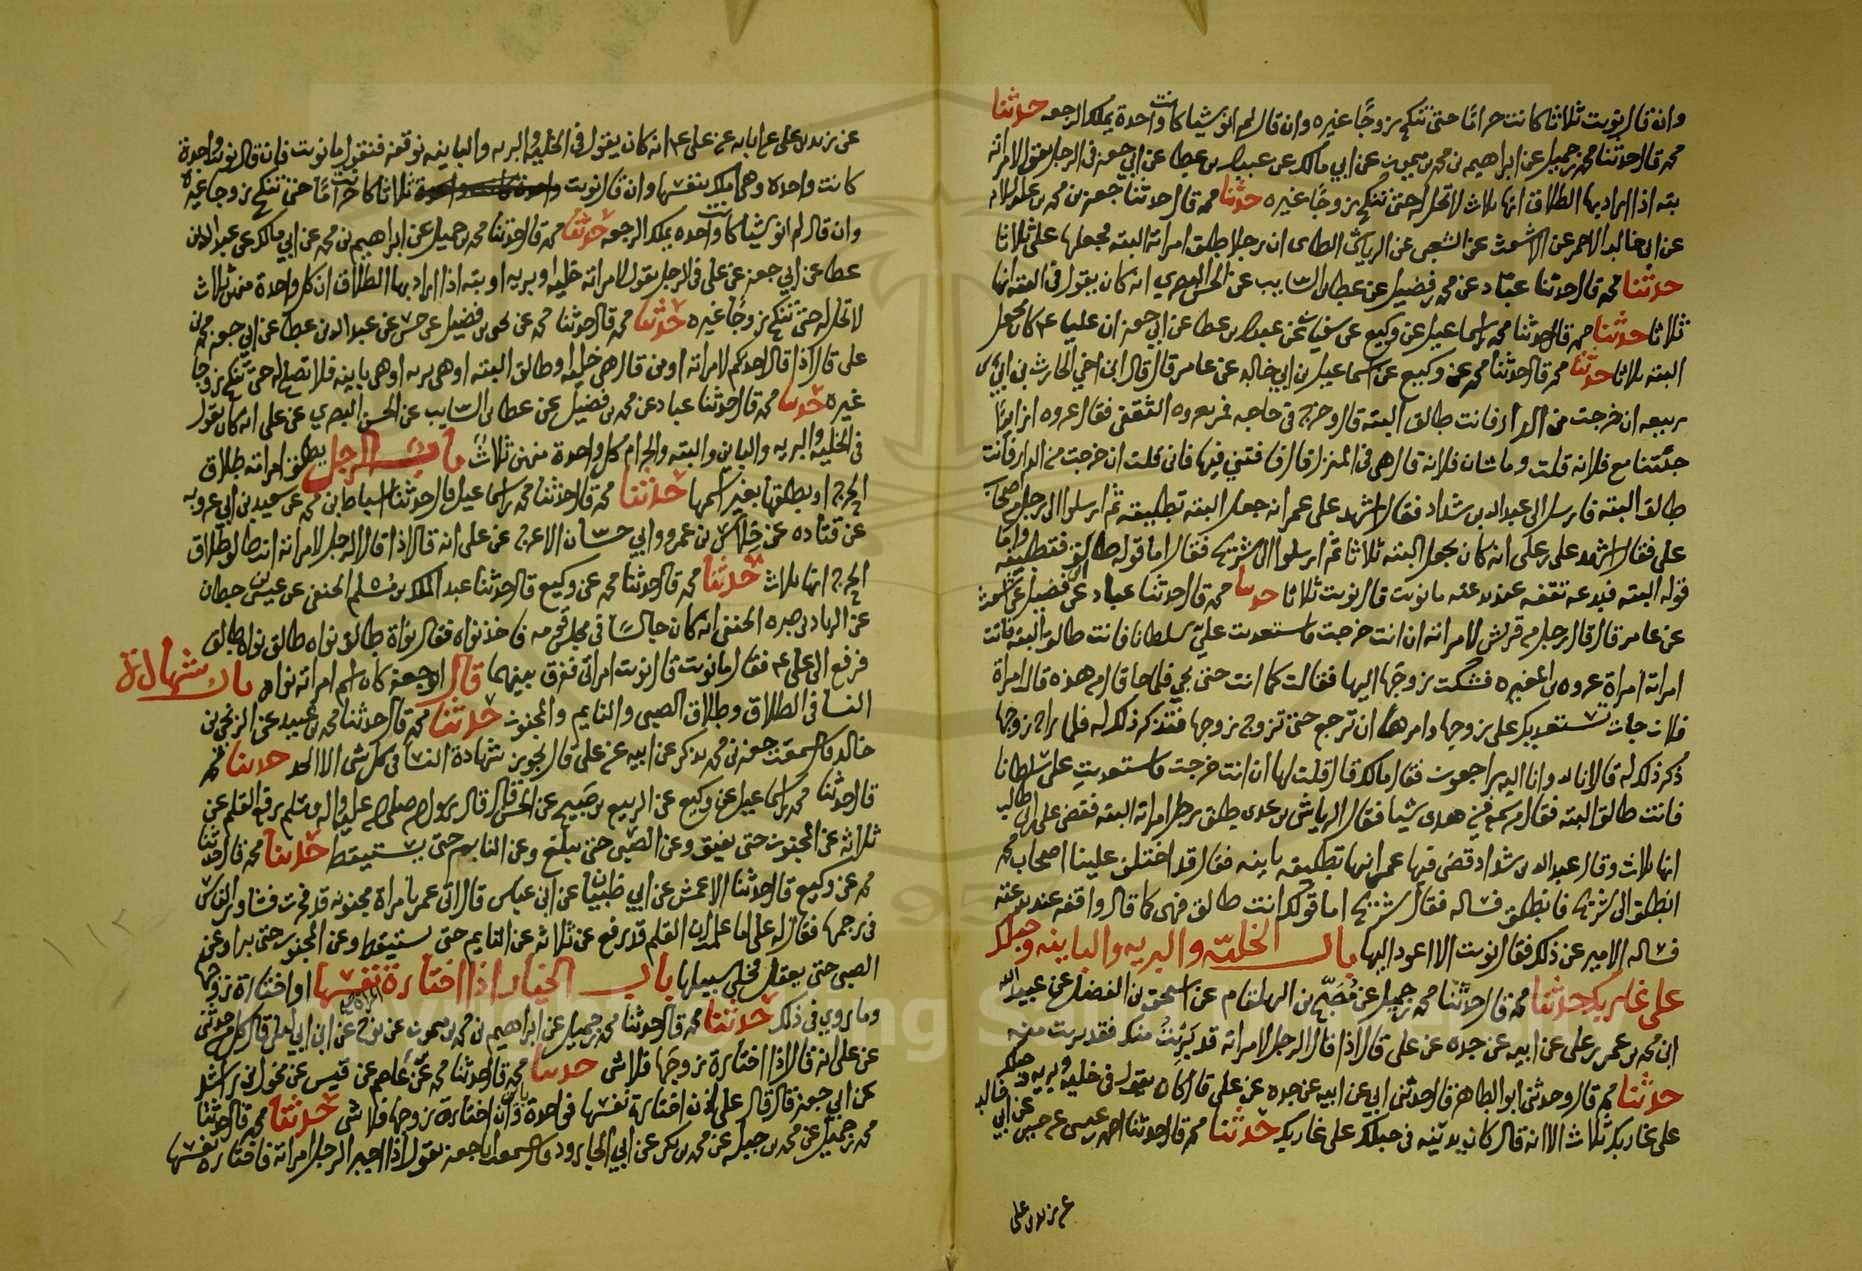 وان قال نويت ثلاثا كانت حراما حتى تنكح زوجا غيره وان قال لم انو شيا كانت واحدة يملك الرجعه حدثنا
محمد قال حدثنا محمد بن جميل عن ابراهيم بن محمد بن ميمون عن ابي مالك عن عبدالله بن عطا عن ابي جعفر في الرجل يقول لامراته
بته اذا اراد بها الطلاق انها ثلاث لا تحل له حتى تنكح زوجا غيره حدثنا محمد قال حدثنا جعفر بن محمد بن عبد السلام
عن ابي خالد الاحمر عن الاشعث عن الشعبي عن الرياش الطائى ان رجلا طلق امراته البته فجعلها على ثلاثا
حدثنا محمد قال حدثنا عباد عن محمد بن فضيل عن عطا بن السايب عن الحسن البصري انه كان يقول في البته انها
ثلاثا حدثنا محمد قال حدثنا محمد بن اسماعيل عن وكيع عن سفين عن عبدالله بن عطا عن ابي جعفر ان عليا عم كان يجعل
البته ثلاثا حدثنا محمد قال حدثنا محمد عن وكيع عن اسماعيل بن ابي خالد عن عامر قال قال ابن اخي الحارث بن ابي
ربيعه ان خرجت من الدار فانت طالق البته قال وخرج في حاجه فمر بعروه الثقفي فقال عروه
جئتنا مع فلانه قلت وما شان فلانة قال هي في المنزل قال فافتني فيها فاني قلت ان خرجت من الدار فانت
طالق البته فارسل الى عبدالله بن شداد فقال اشهد على عمر انه جعل البته تطليقه ثم ارسلوا الى رجل من اصحاب
على فقال اشهد على على انه كان يجعل البته ثلاثا ثم ارسلوا الى شريح فقال اما قوله طالق فتطليقه واما
قوله البته فبدعه نقفه عند بدعته ما نويت قال نويت ثلاثا حدثنا محمد قال حدثنا عباد عن فضيل عن اشعث
عن عامر قال قال رجل من قريش لامراته ان انت خرجت واستعديت علي سلطانا فانت طالق البته فاتت
امراته امراة عروه بن المغيره فشكت زوجها اليها فقالت كما انت حتى يجي فلما جا قال من هذه قال امراة
فلان جات تستعديك على زوجها وامرها ان ترجع حتى تروح زوجها فنذكر ذلك له فلما راح زوجها
ذكر ذلك له قال انا لله وانا اليه راجعون فقال مالك قال قلت لها ان انت خرجت واستعديت علي سلطانا
فانت طالق البته فقال من سمع في هذى شيا فقال الرياش بن عدى طلق رجل امراته البته فقضى على بن ابي طالب
انها ثلاث وقال عبدالله بن شداد قضى فيها عمر انها تطليقه باينه فقال قد اختلف علينا اصحاب محمد
انطلق الى شريح فانطلق فساله فقال شريح اما قولك انت طالق فهى كما قال واقفه عند بدعته
فساله الامير عن ذلك فقال نويت الا اعود اليها باب الخليه والبريه والباينه وحبلك
على غاربك حدثنا محمد قال حدثنا محمد بن جميل عن مصبح بن الهلقام عن اسحق بن الفضل عن عبيدالله
ابن محمد بن عمر بن على عن ابيه عن جده عن على قال اذا قال الرجل لامراته قد برئت منك فقد بريت منه
حدثنا محمد قال وحدثني ابو الطاهر قال حدثني ابي عن ابيه عن جده عن على قال كان يقول في خليه وبريه وحبلك
على غاربك ثلاث الا انه قال كان يدينه في حبلك على غاربك حدثنا محمد قال حدثنا احمد بن عيسى عن حسين عن ابي خالد
عن زيد بن على
عن زيد بن على عن ابايه عن على عم انه كان يقول في الخليه والبريه والباينه نوقفه فنقول ما نويت فان قال نويت واحدة
كانت واحده وهي املك بنفسها وان قال نويت ثلاثا كانت حراما حتى تنكح زوجا غيره
وان قال لم انو شيا كانت واحده يملك الرجعه حدثنا محمد قال حدثنا محمد بن جميل عن ابراهيم بن محمد عن ابي مالك عن عبدالله بن
عطا عن ابي جعفر عن على في الرجل يقول لامراته خليه او بريه او بته اذا اراد بها الطلاق ان كل واحدة منهن ثلاث
لا تحل له حتى تنكح زوجا غيره حدثنا محمد قال حدثنا محمد عن يحيى بن فضيل عن حسن عن عبدالله بن عطا عن ابي جعفر محمد بن
على قال اذا قال احدكم لامراته او من قال هي خليه او طالق البته او هي بريه او هي باينه فلا تصلح له حتى تنكح زوجا
غيره حدثنا محمد قال حدثنا عباد عن محمد بن فضيل عن عطا بن السايب عن الحسن البصري عن على انه كان يقول
في الخليه والبريه والباين والبته والحرام كل واحدة منهن ثلاث باب الرجل يطلق امراته طلاق
الحرج او يطلقها بغير اسمها حدثنا محمد قال حدثنا محمد بن اسماعيل قال حدثنا اسباط بن محمد عن سعيد بن ابي عروبه
عن قتاده عن خلاس بن عمرو وابي حسان الاعرج عن على انه قال اذا قال الرجل لامراته انت طالق طلاق
الحرج انها ثلاث حدثنا محمد قال حدثنا محمد عن وكيع قال حدثنا عبد الملك بن مسلم الحنفي عن عيسى بن حطان
عن الريان بن صبره الحنفي انه كان جالسا في مجلس قومه فاخذ نواه فقال نواة طالق نواه طالق نواه طالق
فرفع الى على عم فقال ما نويت قال نويت امراتي ففرق بينهما قال ابو جعفر كان اسم امراته نواه باب شهادة
النسا في الطلاق وطلاق الصبى والنايم والمجنون حدثنا محمد قال حدثنا محمد بن عبيد عن الزنجي بن
خالد قال سمعت جعفر بن محمد يذكر عن ابيه عن على قال تجوز شهادة النسا في كل شى الا الحد حدثنا محمد
قال حدثنا محمد بن اسماعيل عن وكيع عن الربيع بن صبيح عن الحسن قال قال رسول الله صلى الله عليه واله وسلم رفع القلم عن
ثلاثه عن المجنون حتى يفيق وعن الصبى حتى يبلغ وعن النايم حتى يستيقظ حدثنا محمد قال حدثنا
محمد عن وكيع قال حدثنا الاعمش عن ابي ظبيان عن ابن عباس قال اتى عمر بامراة مجنونه قد فجرت فشاور الناس
في رجمها فقال له على اما علمت ان القلم قد رفع عن ثلاثه عن النايم حتى يستيقظ وعن المجنون حتى يبرا وعن
الصبى حتى يعقل فخلى سبيلها باب الخيار اذا اختارة نفسها او اختارة زوجها
وما روي في ذلك حدثنا محمد قال حدثنا محمد بن جميل عن ابراهيم بن محمد بن ميمون عن نوح عن ابن ابي ليلى قال حدثني
عن على انه قال اذا اختارة زوجها فلا شى حدثنا محمد قال حدثنا محمد عن عاصم عن قيس عن مخول بن راشد
عن ابي جعفر قال قال على ان اختارة نفسها فواحدة وان اختارة زوجها فلا شى حدثنا محمد قال حدثنا
محمد بن جميل عن محمد بن جبله عن محمد بن بكر عن ابي الجارود قال سمعت ابا جعفر يقول اذا خير الرجل امراته فاختارة نفسها